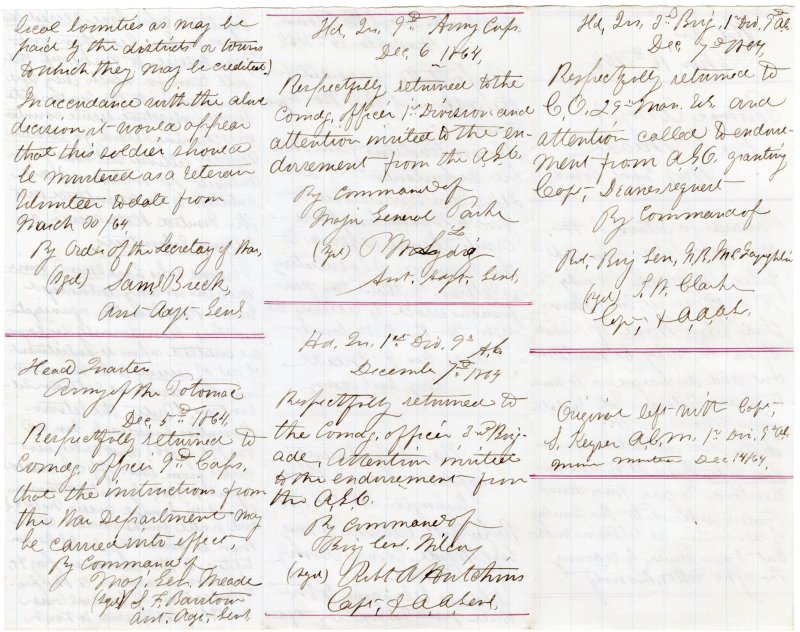 local bounties as may be
paid by the districts or towns
to which they may be credited.)
In accordance with the above
decision it would appear
that this soldier should
be mustered as a Veteran
Volunteer to date from
March 30/64
By Order of the Secretary of War,
(Sgd) Saml Breck,
Asst. Adjt. Genl.
Head Quarters
Army of the Potomac
Dec, 5th 1864,
Respectfully returned to
Comdg. officer 9th Corps,
that the instructions from
the War Department may
be carried into effect,
By Command of
Maj. Gen. Meade
(Sgd) S. F. Barstow
Asst. Agt. Genl.
Hd, Qrs, 9th Army Corps.
Dec, 6 1864,
Respectfully returned to the
Comdg, officer 1st Division and
attention invited to the en-
dorsement from the A.G.O.
By Command of
Major General Parke
(Sgd) P M Lydig
Asst. Adjt. Genl,
Hd, Qrs, 1st Div, 9th A.C.
December 7th 1864
Respectfully returned to
the Comdg, officer 3rd Brig-
ade, Attention invited
to the endorsement from
the A.G.O.
By Command of
Brig Gen. Wilcox
(Sgd) Robt A Hutchins
Capt, & A.A. Genl,
Hd, Qrs, 3rd Brig, 1st Div, 9th A.C.
Dec, 7th 1864,
Respectfully returned to
C.O. 29th Mass. Vols. and
attention called to endorse-
ment from A.G.O. granting
Capt, Deanes request
By Command of
Bvt, Brig Gen, N.B. McLaughlin
(Sgd) S. B. Clarke
Capt, & A.A.A.G.
Original left with Capt,
S. Keyser A.C.M. 1st Div, 9th A.C.
Dec 14/64,